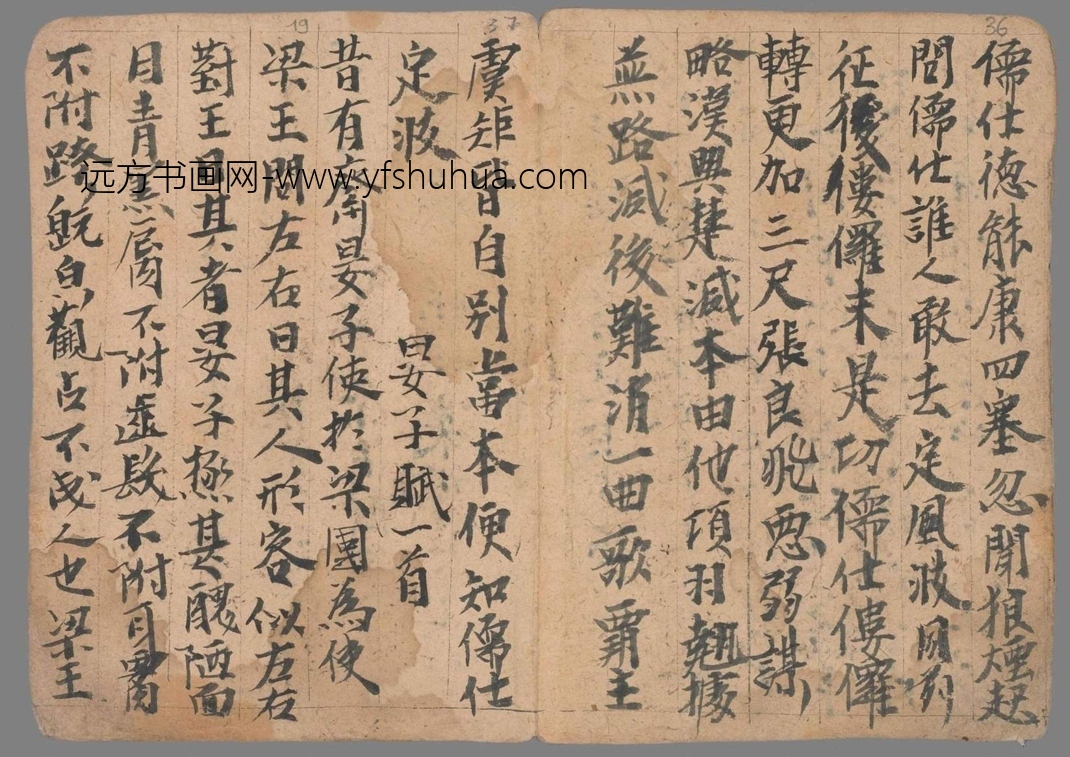 36
37
19
儒仕德能康四塞忽聞狼煙起
問儒仕誰人敢去定風波同前
征後僂儸未是功儒仕僂儸
轉更加三尺張良飛惡弱謀
略漢興楚滅本由他項羽翹據
無路滅後難消一曲歌霸主
虞矩皆自別當本便知儒仕
定波 晏子賦一首
昔有齊晏子使於梁國為使
梁王問左右曰其人形容似左右
對王曰其者晏子極其醜陋面
目青黑唇不附齒髮不附耳
不附踝既自觀占不成人也梁王
远方书画网-www.yfshuhua.com